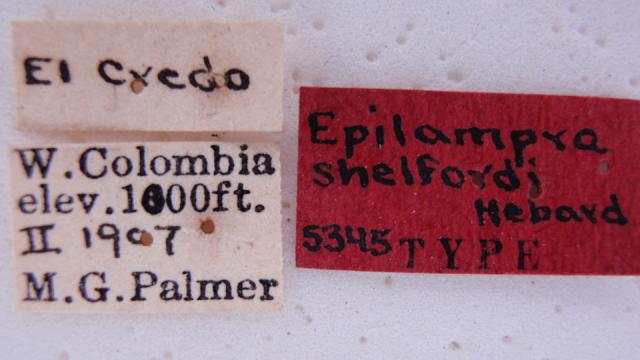 El Credo
W. Colombia
elev. 1000ft.
II 1907
M.G. Palmer
Epilampra
shelfordi
Hebard
5345 TYPE